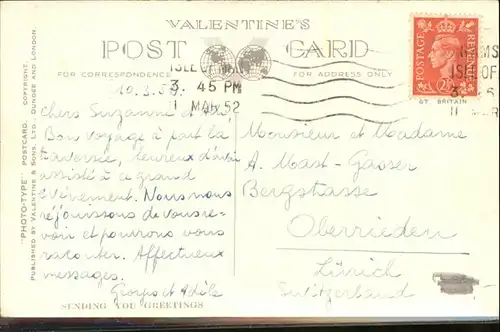 VALENTINE'S
POST CARD
FOR CORRESPONDENCE
FOR ADDRESS ONLY
ISLE OF
3 45 PM
11 MAR 52
ISLE OF
POSTAGE REVENUE
GT. BRITAIN
"PHOTO-TYPE" POSTCARD. COPYRIGHT.
PUBLISHED BY VALENTINE & SONS, LTD., DUNDEE AND LONDON.
10.3.52
chers Suzanne et
Bon voyage à part la
traversée, heureux d'avoir
assisté à ce grand
événement. Nous nous
réjouissons de vous re-
voir et pouvrons vous
raconter. Affectueux
messages.
Georges et Adèle
SENDING YOU GREETINGS
Monsieur et Madame
A. Mast-Gasser
Bergstrasse
Oberrieden
Zürich
Switzerland